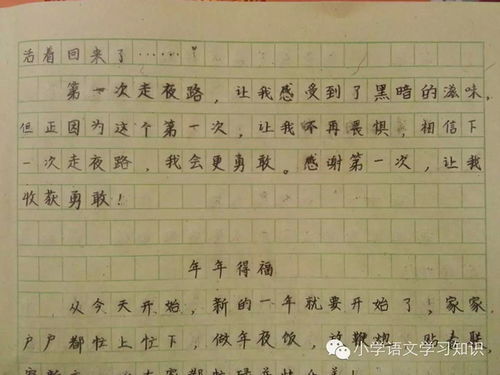 活着回来了……
第一次走夜路，让我感受到了黑暗的滋味，
但正因为这个第一次，让我不再畏惧，相信下
一次走夜路，我会更勇敢。感谢第一次，让我
收获勇敢！
年年得福
从今天开始，新的一年就要开始了！家家
户户都忙上忙下，做年夜饭，放鞭炮，贴春联，
小学语文学习知识